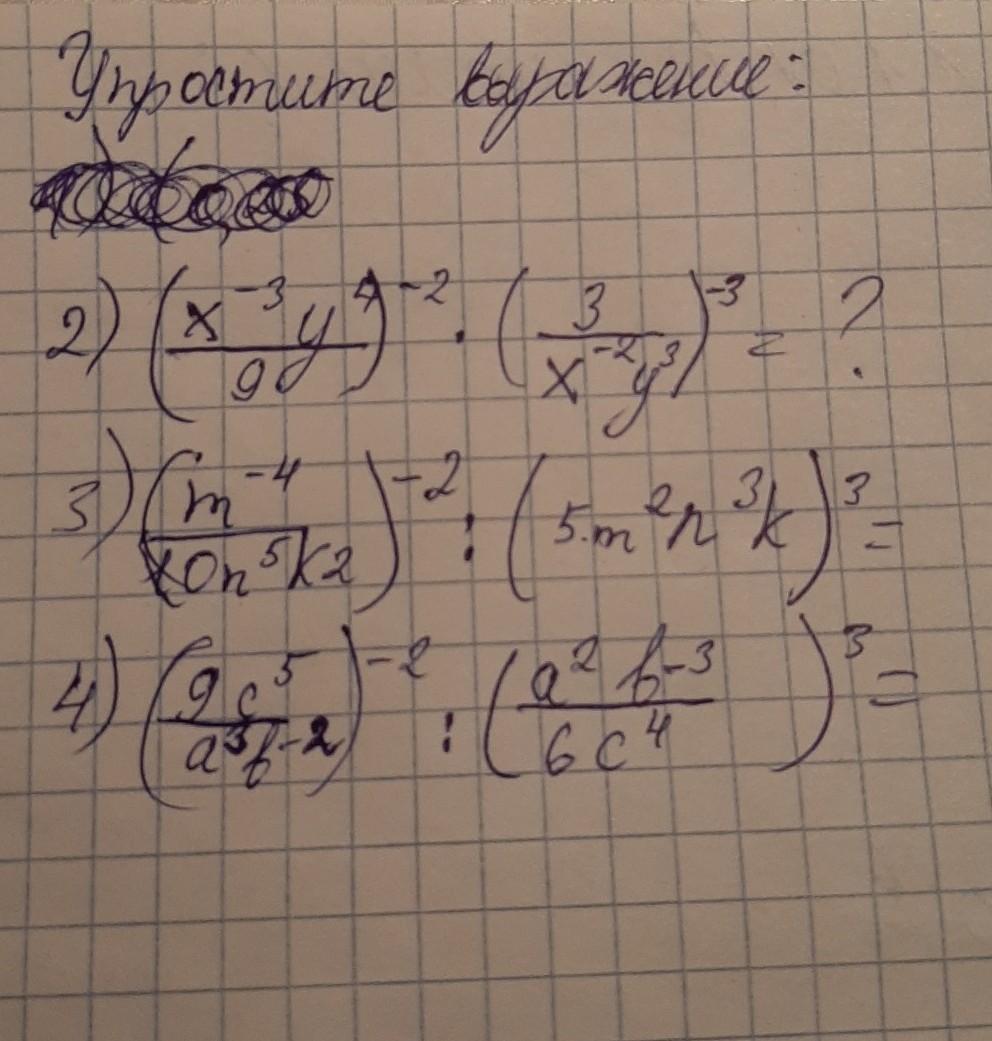 Упростите выражение:
2) (x⁻³y⁴/9)⁻² · (3/x⁻²y³)⁻³ = ?
3) (m⁻⁴/10n⁵k2)⁻² : (5m²n³k)³ =
4) (9c⁵/a³b⁻²)⁻² : (a²b⁻³/6c⁴)³ =